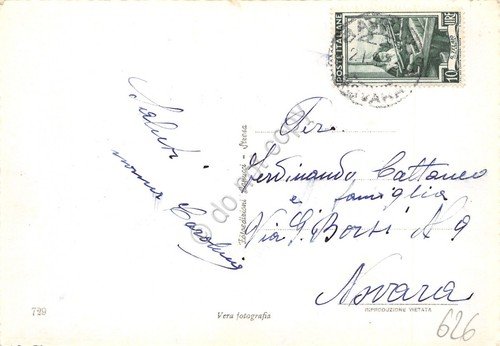 Saluti
nonna Carolina
Fer.
Ferdinando Cattaneo
e famiglia
Via G. Borsi N 9
Novara
POSTE ITALIANE
LIRE
10
Stresa
do not copy
729
Vera fotografia
RIPRODUZIONE VIETATA
626